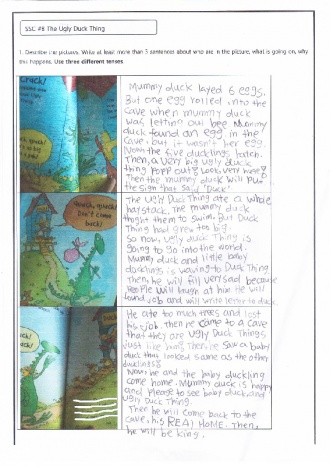 SSC #8 The Ugly Duck Thing
1. Describe the pictures. Write at least more than 3 sentences about who are in the picture, what is going on, why
this happens. Use three different tenses.
Crack!
Mummy duck layed 6 eggs.
But one egg rolled into the
cave when mummy duck
was letting out pee. Mummy
duck found an egg in the
cave, but it wasn't her egg.
Now the five ducklings hatch.
Then, a very big ugly duck
thing
Then the mummy duck will put
the sign that said "Duck"
Quack, quack!
Don't come
back!
The Ugly Duck Thing ate a whole
haystack. The mummy duck
thought them to swim. But Duck
Thing had grew too big.
So now, Ugly duck Thing is
going to go into the world.
Mummy duck and little baby
ducklings is waving to Duck Thing
Then, he will fill very sad because
people will laugh at him. He will
found job and will write letter to duck.
He ate too much trees and lost
his job. Then he came to a cave
that they are Ugly Duck Things
Just like him. Then he saw a baby
duck that looked same as the other
ducklings.
Now he and the baby duckling
come home. Mummy duck is happy
and please to see baby duck and
Ugly Duck Thing.
Then he will come back to the
cave, his REAL HOME. Then,
he will be king.